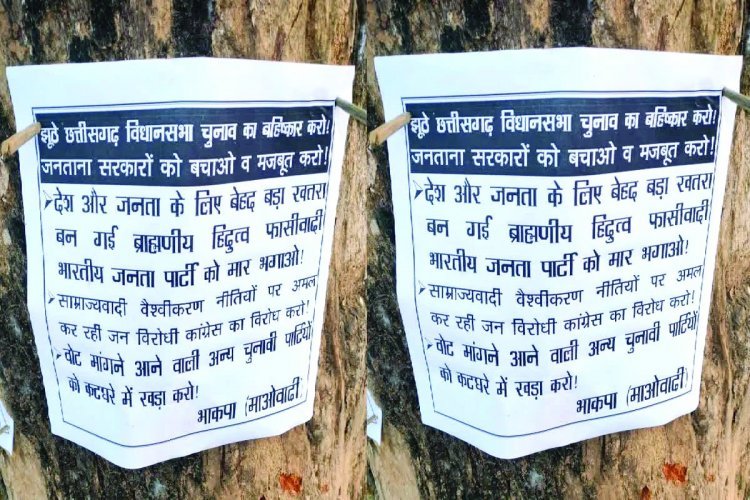 झूठे छत्तीसगढ़ विधानसभा चुनाव का बहिष्कार करो!
जनताना सरकारों को बचाओ व मजबूत करो!
➢देश और जनता के लिए बेहद बड़ा खतरा
बन गई ब्राह्मणीय हिंदुत्व फासीवादी
भारतीय जनता पार्टी को मार भगाओ!
➢साम्राज्यवादी वैश्वीकरण नीतियों पर अमल
कर रही जन विरोधी कांग्रेस का विरोध करो!
➢वोट मांगने आने वाली अन्य चुनावी पार्टियों
को कटघरे में खड़ा करो!
भाकपा (माओवादी)
झूठे छत्तीसगढ़ विधानसभा चुनाव का बहिष्कार करो!
जनताना सरकारों को बचाओ व मजबूत करो!
➢देश और जनता के लिए बेहद बड़ा खतरा
बन गई ब्राह्मणीय हिंदुत्व फासीवादी
भारतीय जनता पार्टी को मार भगाओ!
➢साम्राज्यवादी वैश्वीकरण नीतियों पर अमल
कर रही जन विरोधी कांग्रेस का विरोध करो!
➢वोट मांगने आने वाली अन्य चुनावी पार्टियों
को कटघरे में खड़ा करो!
भाकपा (माओवादी)